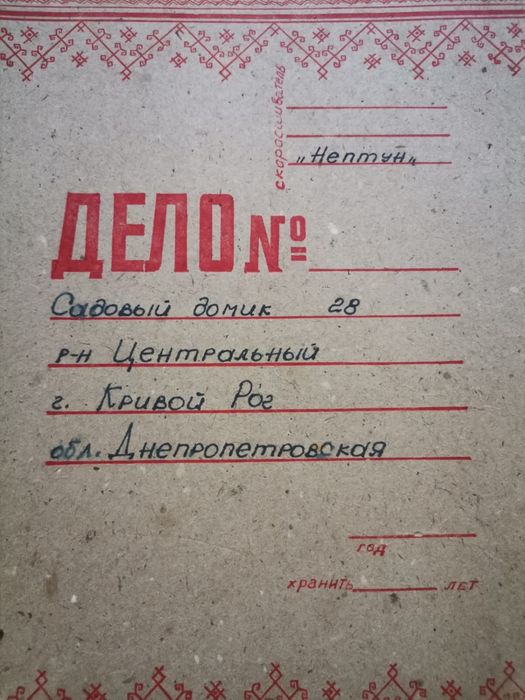 скоросшиватель
„Нептун„
ДЕЛО №
Садовый домик 28
р-н Центральный
г. Кривой Рог
обл. Днепропетровская
год
хранить лет